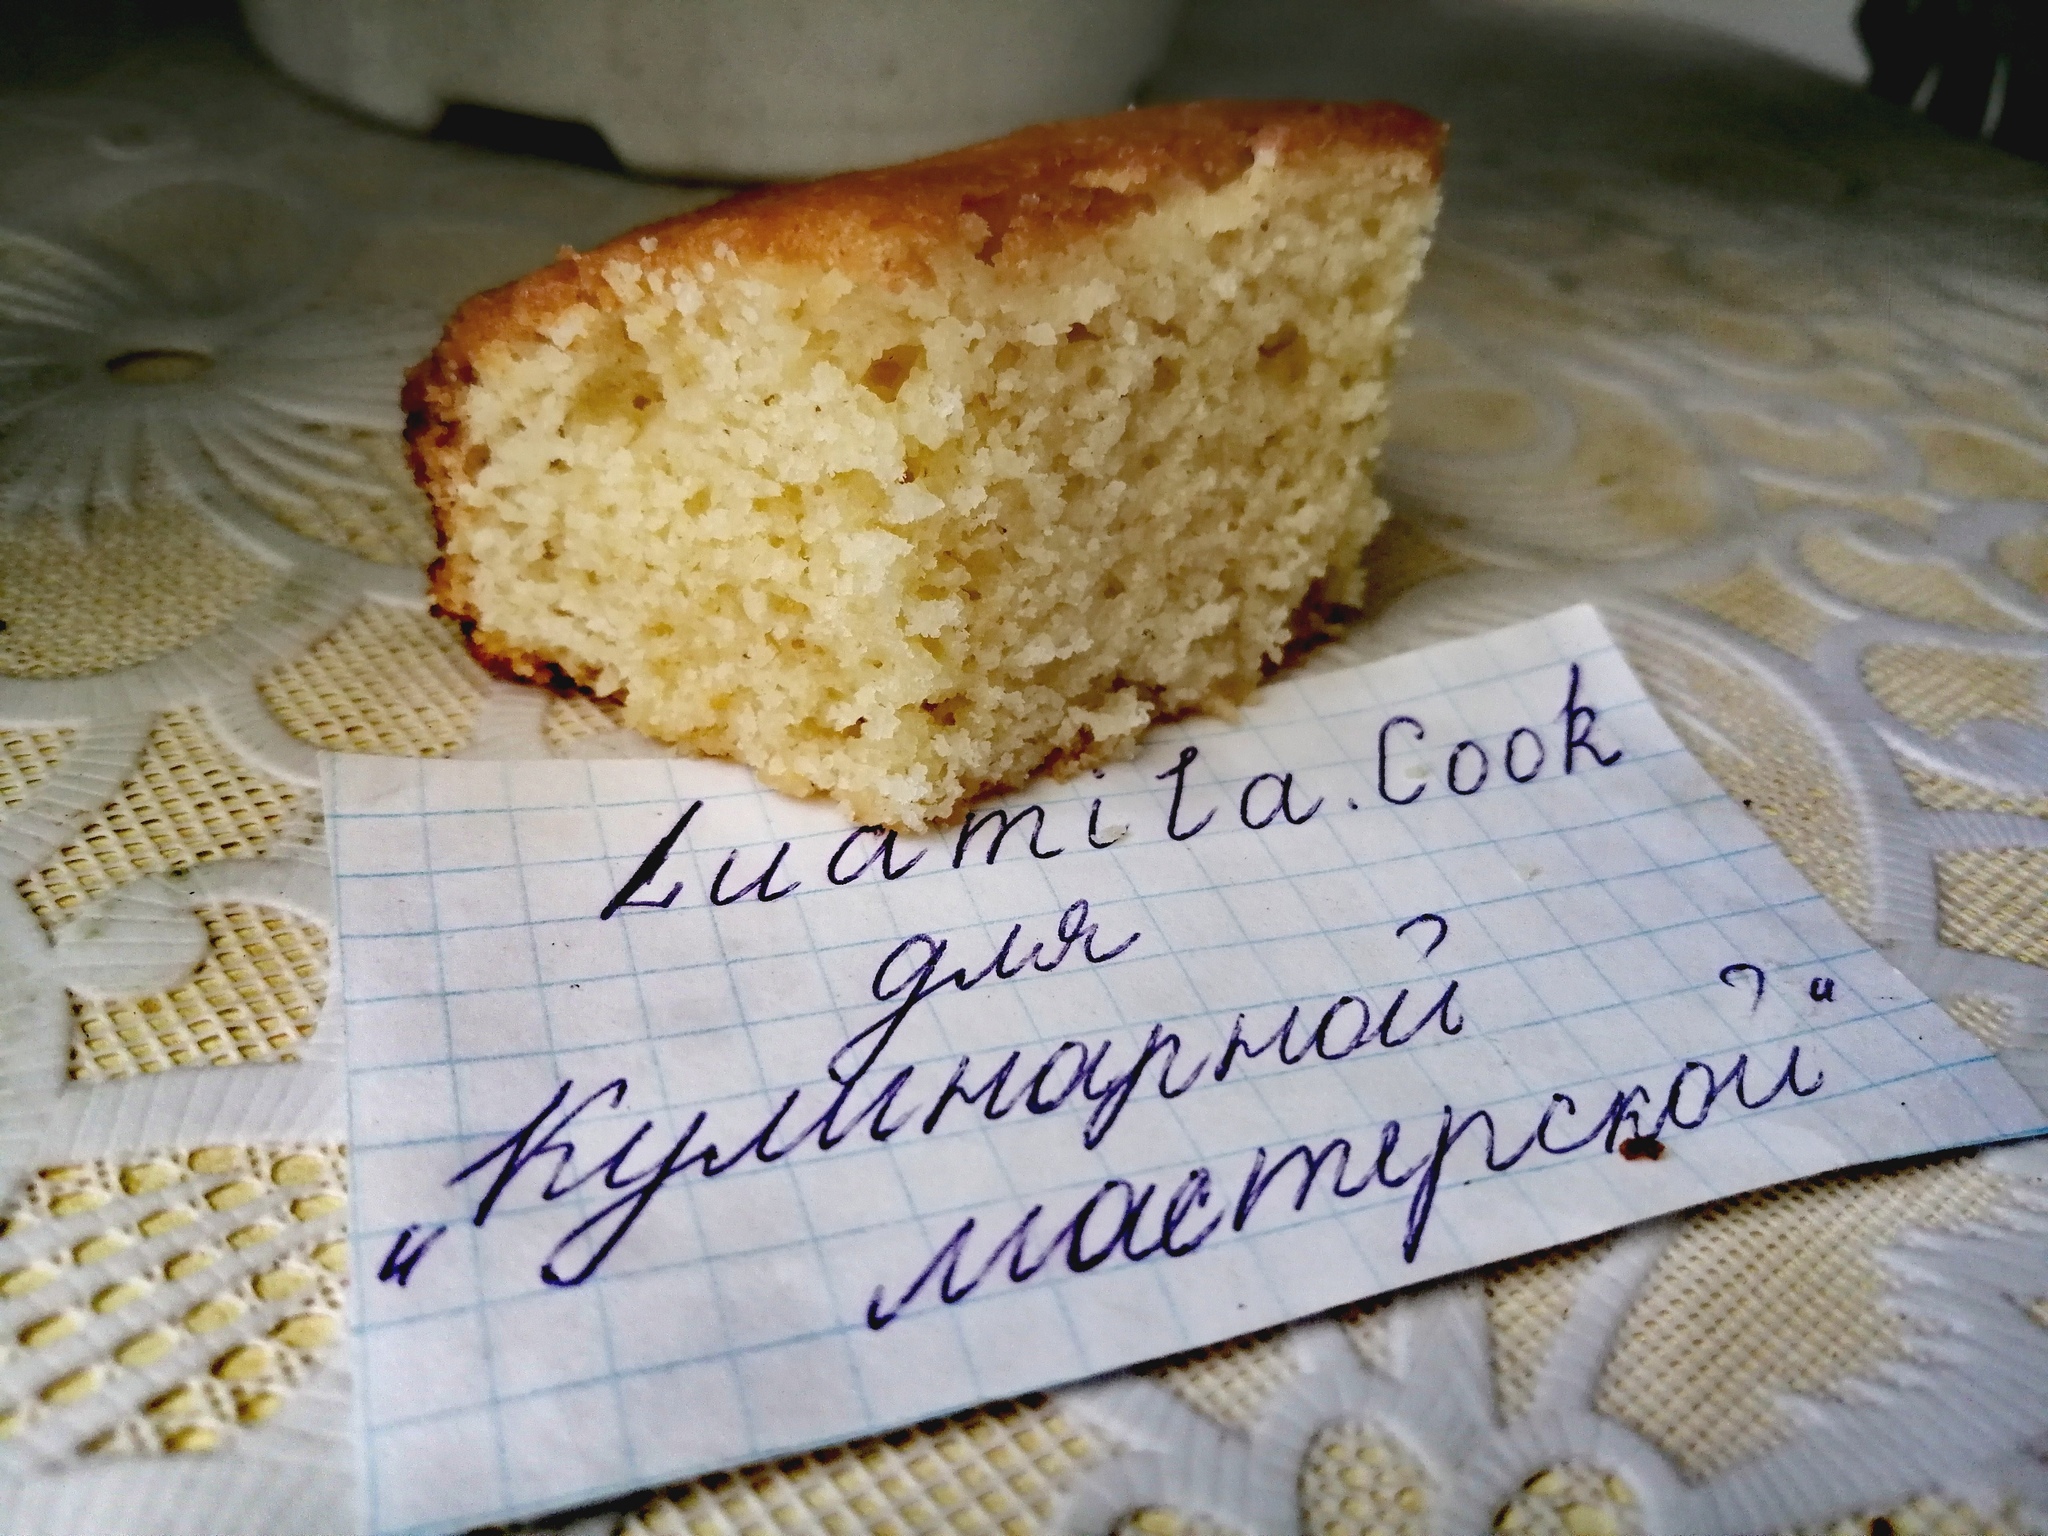 Luamila.Cook
для
„Кулинарной
мастерской“